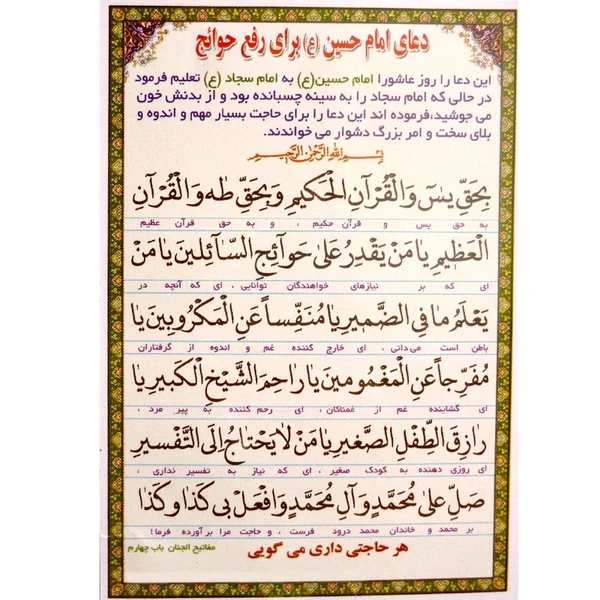 دعای امام حسین (ع) برای رفع حوائج
این دعا را روز عاشورا امام حسین(ع) به امام سجاد (ع) تعلیم فرمود
در حالی که امام سجاد را به سینه چسبانده بود و از بدنش خون
می جوشید،فرموده اند این دعا را برای حاجت بسیار مهم و اندوه و
بلای سخت و امر بزرگ دشوار می خواندند.
بِسْمِ اللهِ الرَّحْمٰنِ الرَّحیمِ
بِحَقِّ یسَ وَالْقُرْآنِ الْحَکیمِ وَ بِحَقِّ طه وَالْقُرْآنِ
به حق یس و قرآن حکیم ، و به حق قرآن عظیم
الْعَظیمِ یا مَنْ یَقْدِرُ عَلیٰ حَوآئِجِ السّآئِلینَ یا مَنْ
ای که بر نیازهای خواهندگان توانایی ، ای که آنچه در
یَعْلَمُ ما فِی الضَّمیرِ یا مُنَفِّساً عَنِ الْمَکْرُوبینَ یا
باطن است می دانی ، ای خارج کننده غم و اندوه از گرفتاران
مُفَرِّجاً عَنِ الْمَغْمُومینَ یا راحِمَ الشَّیْخِ الْکَبیرِ یا
ای گشاینده غم از غمناکان ، ای رحم کننده به پیر مرد ،
رازِقَ الطِّفْلِ الصَّغیرِ یا مَنْ لا یَحْتاجُ اِلَی التَّفْسیرِ
ای روزی دهنده به کودک صغیر ، ای که نیاز به تفسیر نداری ،
صَلِّ عَلیٰ مُحَمَّدٍ وَ آلِ مُحَمَّدٍ وَافْعَلْ بی کَذا وَ کَذا
بر محمد و خاندان محمد درود فرست ، و حاجت مرا بر آورده فرما!
هر حاجتی داری می گویی
مفاتیح الجنان باب چهارم